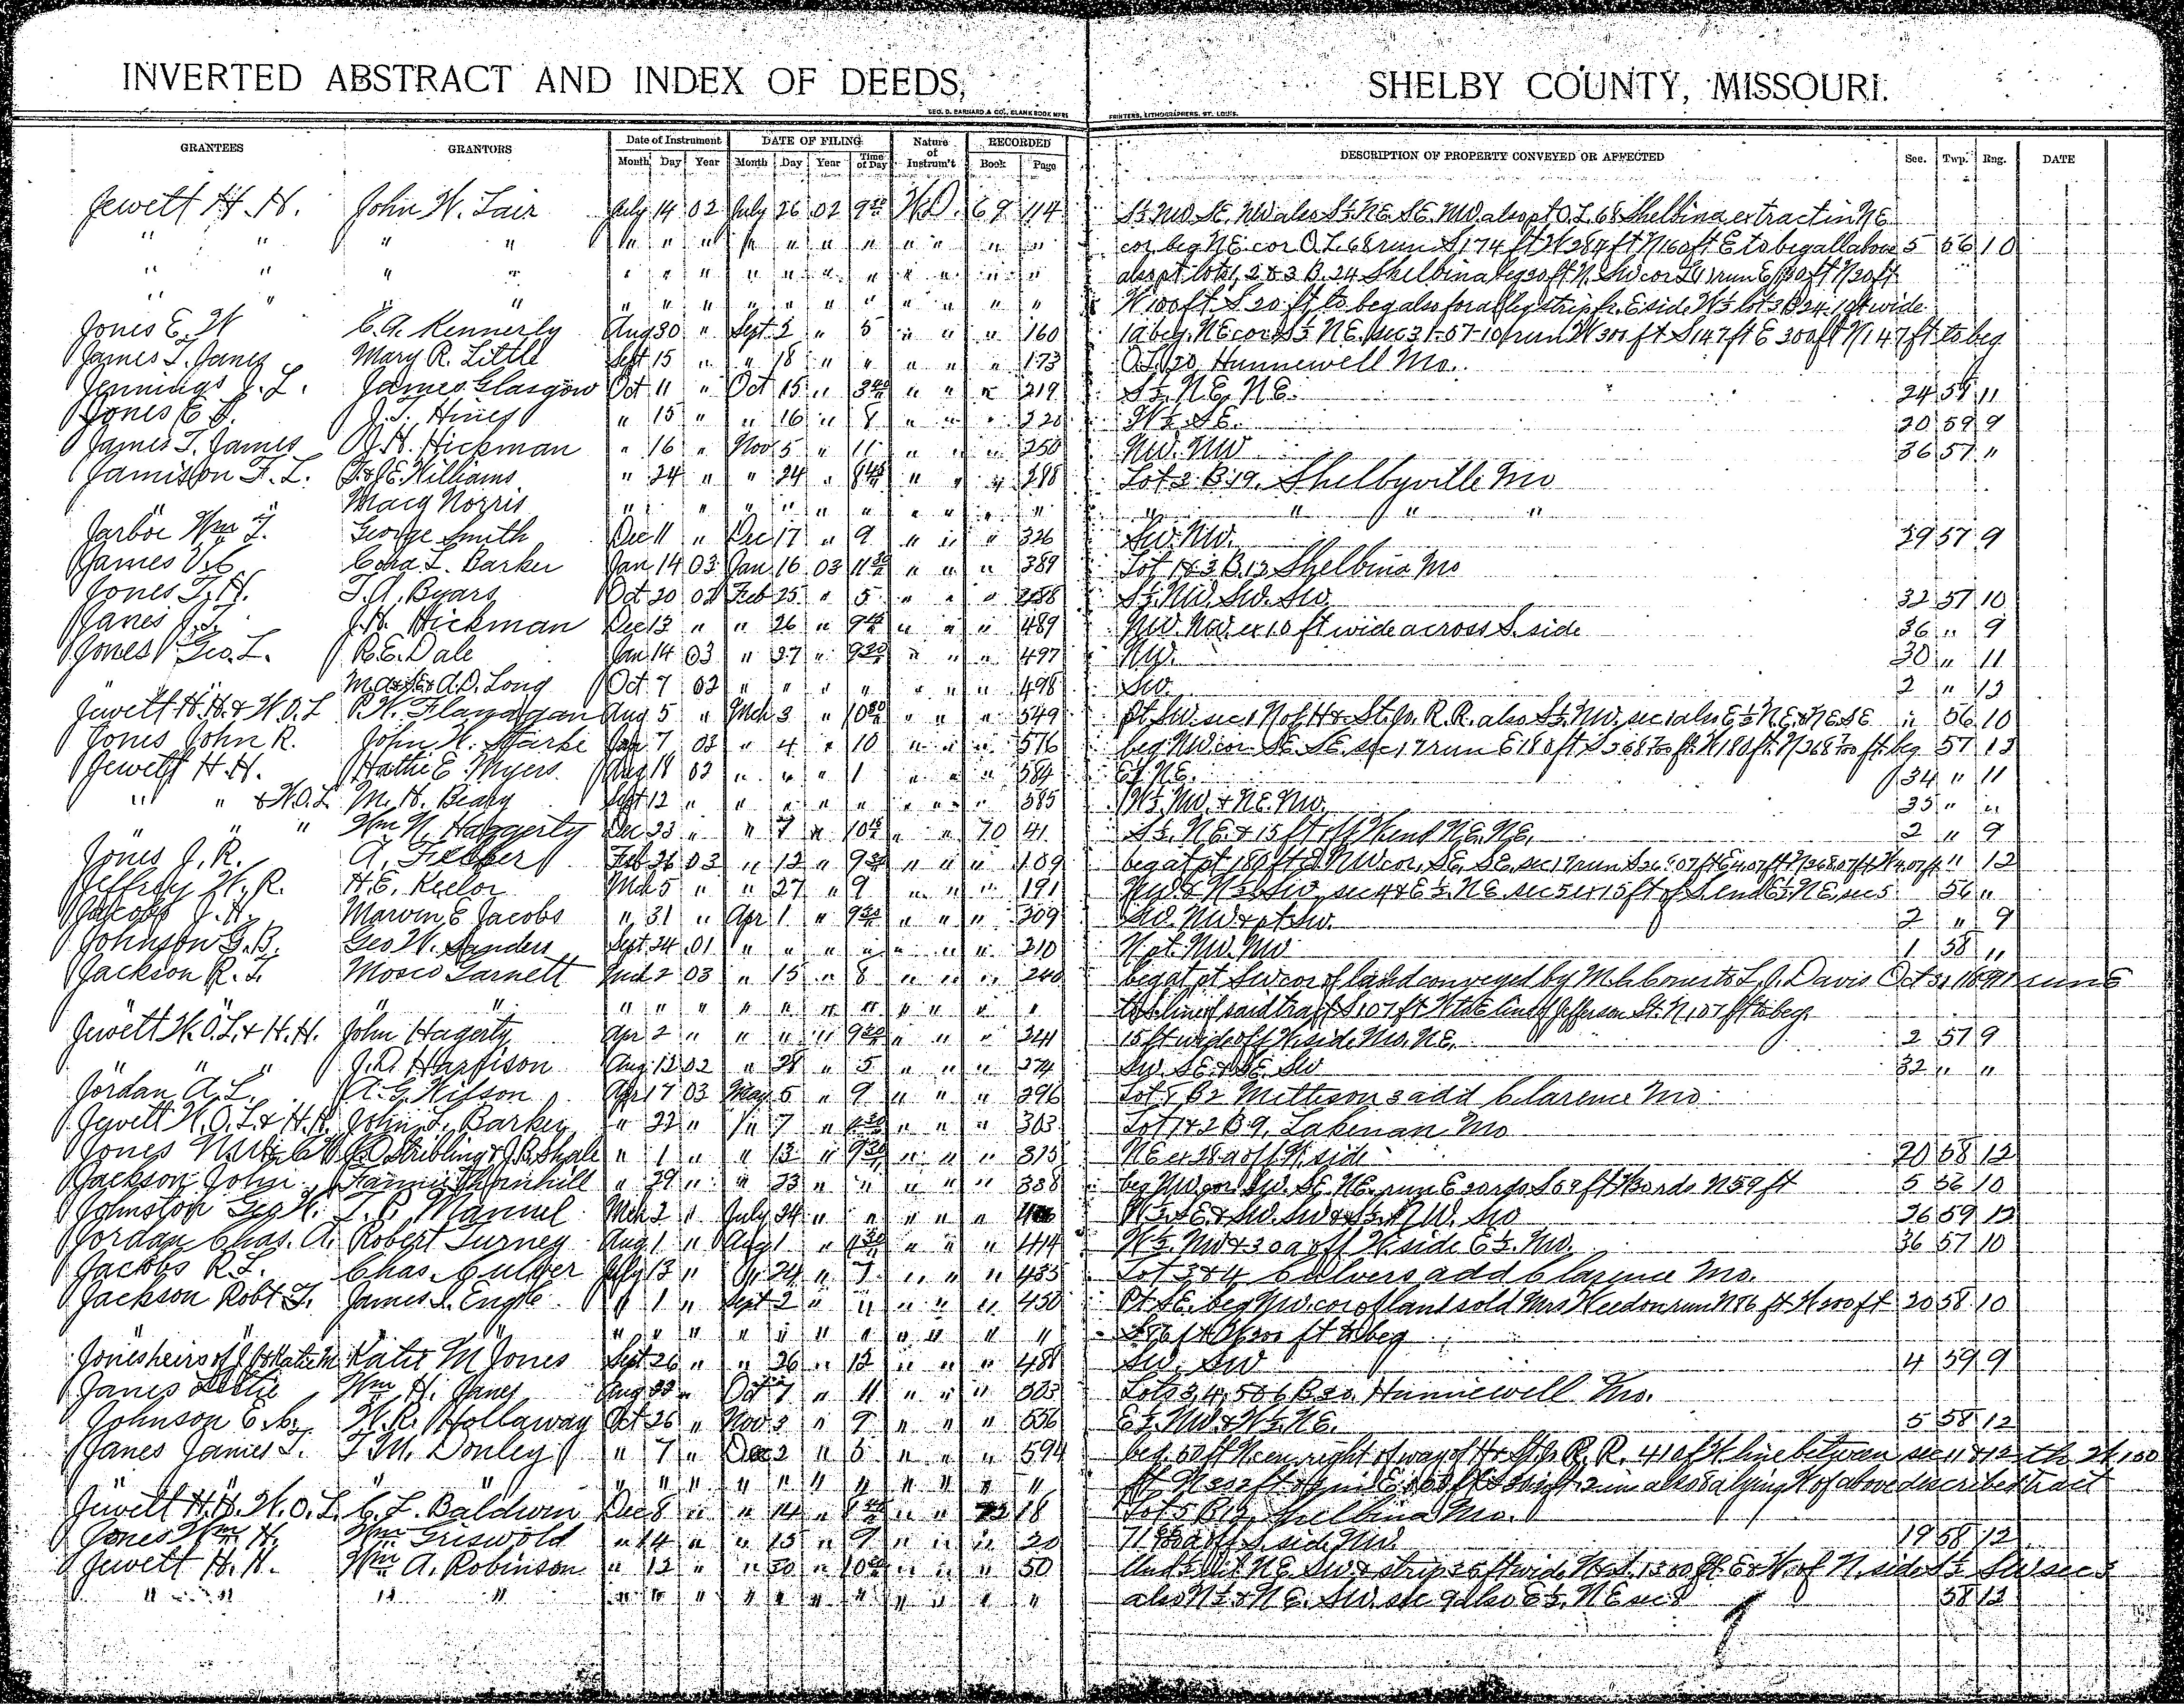 INVERTED ABSTRACT AND INDEX OF DEEDS, SHELBY COUNTY, MISSOURI.
GEO. D. BARNARD & CO., BLANK BOOK MFRS PRINTERS, LITHOGRAPHERS, ST. LOUIS.
GRANTEES GRANTORS Date of Instrument DATE OF FILING Nature of Instrum't RECORDED DESCRIPTION OF PROPERTY CONVEYED OR AFFECTED Sec. Twp. Rng. DATE
Month Day Year Month Day Year Time of Day Book Page
Jewett H. H. John W. Lair July 14 02 July 26 02 9 W.D. 69 114 S½ NW SE NW also S½ NE SE NW also pt O.L. 68 Shelbina ex tract in NE
" " " " " " " " " " " " " " " cor beg NE cor O.L. 68 run S 174 ft W 284 ft N 160 ft E to beg all above 5 56 10
" " " " " " " " " " " " " " " also pt lots 1, 2 & 3 B. 24 Shelbina beg 20 ft N. SW cor L 1 run E 100 ft N 20 ft
" " " " " " " " " " " " " " " W 100 ft S 20 ft to beg also for alley strip fr. E side W½ lot 3 B 24. 10 ft wide
Jones E. W C. A. Kennerly Aug 30 " Sept 2 " 5 " " " 160 1a beg. NE cor S½ NE. sec 31-57-10 run W 300 ft S 147 ft E 300 ft N 147 ft to beg
James T. Janes Mary R. Little Sept 15 " " 18 " " " " " 173 O.L. 20, Hunnewell Mo.
Jennings J. L. James Glasgow Oct 11 " Oct 15 " 3 " " " 219 S½. NE, NE. 24 58 11
Jones E. J. J. T. Hines " 15 " " 16 " 8 " " " 220 W½ SE. 20 59 9
James T. James J. H. Hickman " 16 " Nov 5 " 11 " " " 250 NW. NW 36 57 "
Jamison F. L. T & J E Williams " 24 " " 24 " 8 " " " 288 Lot 2 B. 19. Shelbyville Mo
" Macy Norris " " " " " " " " " " " " " " "
Jarboe Wm T. George Smith Dec 11 " Dec 17 " 9 " " " 326 SW. NW. 29 57 9
James V. C. Cora L. Barker Jan 14 03 Jan 16 03 11 " " " 389 Lot 1 & 3 B. 12 Shelbina Mo
Jones T. H. T. A. Byars Oct 20 02 Feb 25 " 5 " " " 488 S½ NW, SW. SW. 32 57 10
Janes J. T. J. H. Hickman Dec 13 " " 26 " 9 " " " 489 NW. NW. ex 10 ft wide across S. side 36 " 9
Jones Geo. L. R. E. Dale Jan 14 03 " 27 " 9 " " " 497 NW. 30 " 11
A. D. Long Oct 7 02 " " " " " " " 498 SW. 2 " 12
Jewett H. H. & W. O. L P. W. Flanagan Aug 5 " Mch 3 " 10 " " " 549 pt. SW. sec 1 N of H & St Jo. R. R. also S½. NW. sec 1 also E½ NE & NE SE " 56 10
Jones John R. John W. Starke Jan 7 03 " 4 " 10 " " " 576 beg NW cor. SE. SE. sec 17 run E 180 ft S 268 ft. W 180 ft. N 268 ft. beg 57 12
Jewett H. H. Hattie E. Myers Aug 18 02 " " " 1 " " " 584 E½ NE. 34 " 11
" " & W. O. L M. H. Beary Sept 12 " " " " " " " " 585 W½. NW. & NE. NW. 35 " "
" " " Wm N. Haggerty Dec 23 " " 7 " 10 " " 70 41 S½. NE & 15 ft off W. end NE. NE. 2 " 9
Jones J. R. A. Feeber Feb 26 03 " 12 " 9 " " " 109 beg at pt 180 ft E NW cor. SE. SE. sec 17 run S " 12
Jeffrey W. R. H. E. Keelor Mch 5 " " 27 " 9 " " " 191 NW. & N½ SW. sec 4 & E½. NE sec 5 ex 15 ft of S. end E½ NE, sec 5 56 "
Jacobs J. H. Marvin E Jacobs " 31 " Apr 1 " 9 " " " 209 SW. NW & pt SW. 2 " 9
Johnson G. B. Geo W. Sanders Sept 24 01 " " " " " " " 210 N pt. NW. NW 1 58 "
Jackson R. T. Mosco Garnett Mch 2 03 " 15 " 8 " " " 240 beg at pt SW cor of land conveyed by L. J. Davis Oct 31 1891 run E
" " " " " " " " " " " " " " to S line of said tract S 107 ft W to E line of Jefferson St. N 107 ft to beg.
Jewett W. O. L. & H. H. John Hagerty Apr 2 " " " " 9 " " " 241 15 ft wide off W. side NW. NE. 2 57 9
" " " J. R. Harrison Aug 12 02 " 28 " 5 " " " 274 SW. SE & SE. SW 32 " "
Jordan A. L. A. G. Wilson Apr 17 03 May 5 " 9 " " " 296 Lot 5 B 2 add Clarence Mo
Jewett W. O. L & H. H. John L. Barker " 22 " " 7 " " " " 303 Lot 1 & 2 B 9, Lakenan Mo
Jones Stribling & J. B. Shale " 1 " " 13 " 9 " " " 315 NE ex 28 a off W. side 20 58 12
Jackson John Fannie Thornhill " 29 " " 23 " " " " " 338 beg NW cor. SW. SE. NE. run E 20 rds S 59 ft W 20 rds N 59 ft 5 56 10
Johnston Geo W. T. P. Manuel Mch 2 " July 24 " " " " " W½ SE & SW. SW & S½ NW. SW 26 59 12
Jordan Chas. A. Robert Turney Aug 1 " Aug 1 " " " " 414 W½. NW & 30 a off W. side E½. NW. 36 57 10
Jacobs R. L. Chas. Culver July 13 " " 24 " 7 " " " 435 Lot 3 & 4 Culvers add Clarence Mo.
Jackson Robt T. James S. Engle " 1 " Sept 2 " " " " " 450 Pt SE. beg NW. cor of land sold Mrs Weedon run N 86 ft W 200 ft 20 58 10
" " " " " " " " " " " " " S 86 ft E 200 ft to beg
Jones heirs of J. J. & Katie M Katie M Jones Sept 26 " " 26 " 12 " " " 488 SW. SW 4 59 9
Janes Lettie Wm H. Janes Aug 22 " Oct 7 " 11 " " " 503 Lots 3, 4, 5 & 6 B 20. Hunnewell Mo.
Johnson E. C. W. R. Hollaway Oct 26 " Nov 3 " 9 " " " 556 E½. NW. & W½. NE. 5 58 12
Janes James T. T. M. Donley " 7 " Dec 2 " 5 " " " 594 beg. 50 ft N. cen. right of way of H & St Jo R. R. line between sec 11 & 12
" " " " " " " " " " " " " also lying W of above described tract
Jewett H. H. W. O. L. C. L. Baldwin Dec 8 " " 14 " " " 72 18 Lot 5 B 12, Shelbina Mo.
Jones Wm H. Wm Griswold " 14 " " 15 " 9 " " " 20 off S. side NW. 19 58 12
Jewett H. H. Wm A. Robinson " 12 " " 30 " 10 " " " 50 Und ½ int NE SW & strip 35 ft wide of N. side S½ SW sec 3
" " " " " " " " " " " " " " also N½ & NE. SW. sec 9 also E½. NE sec 8 58 12